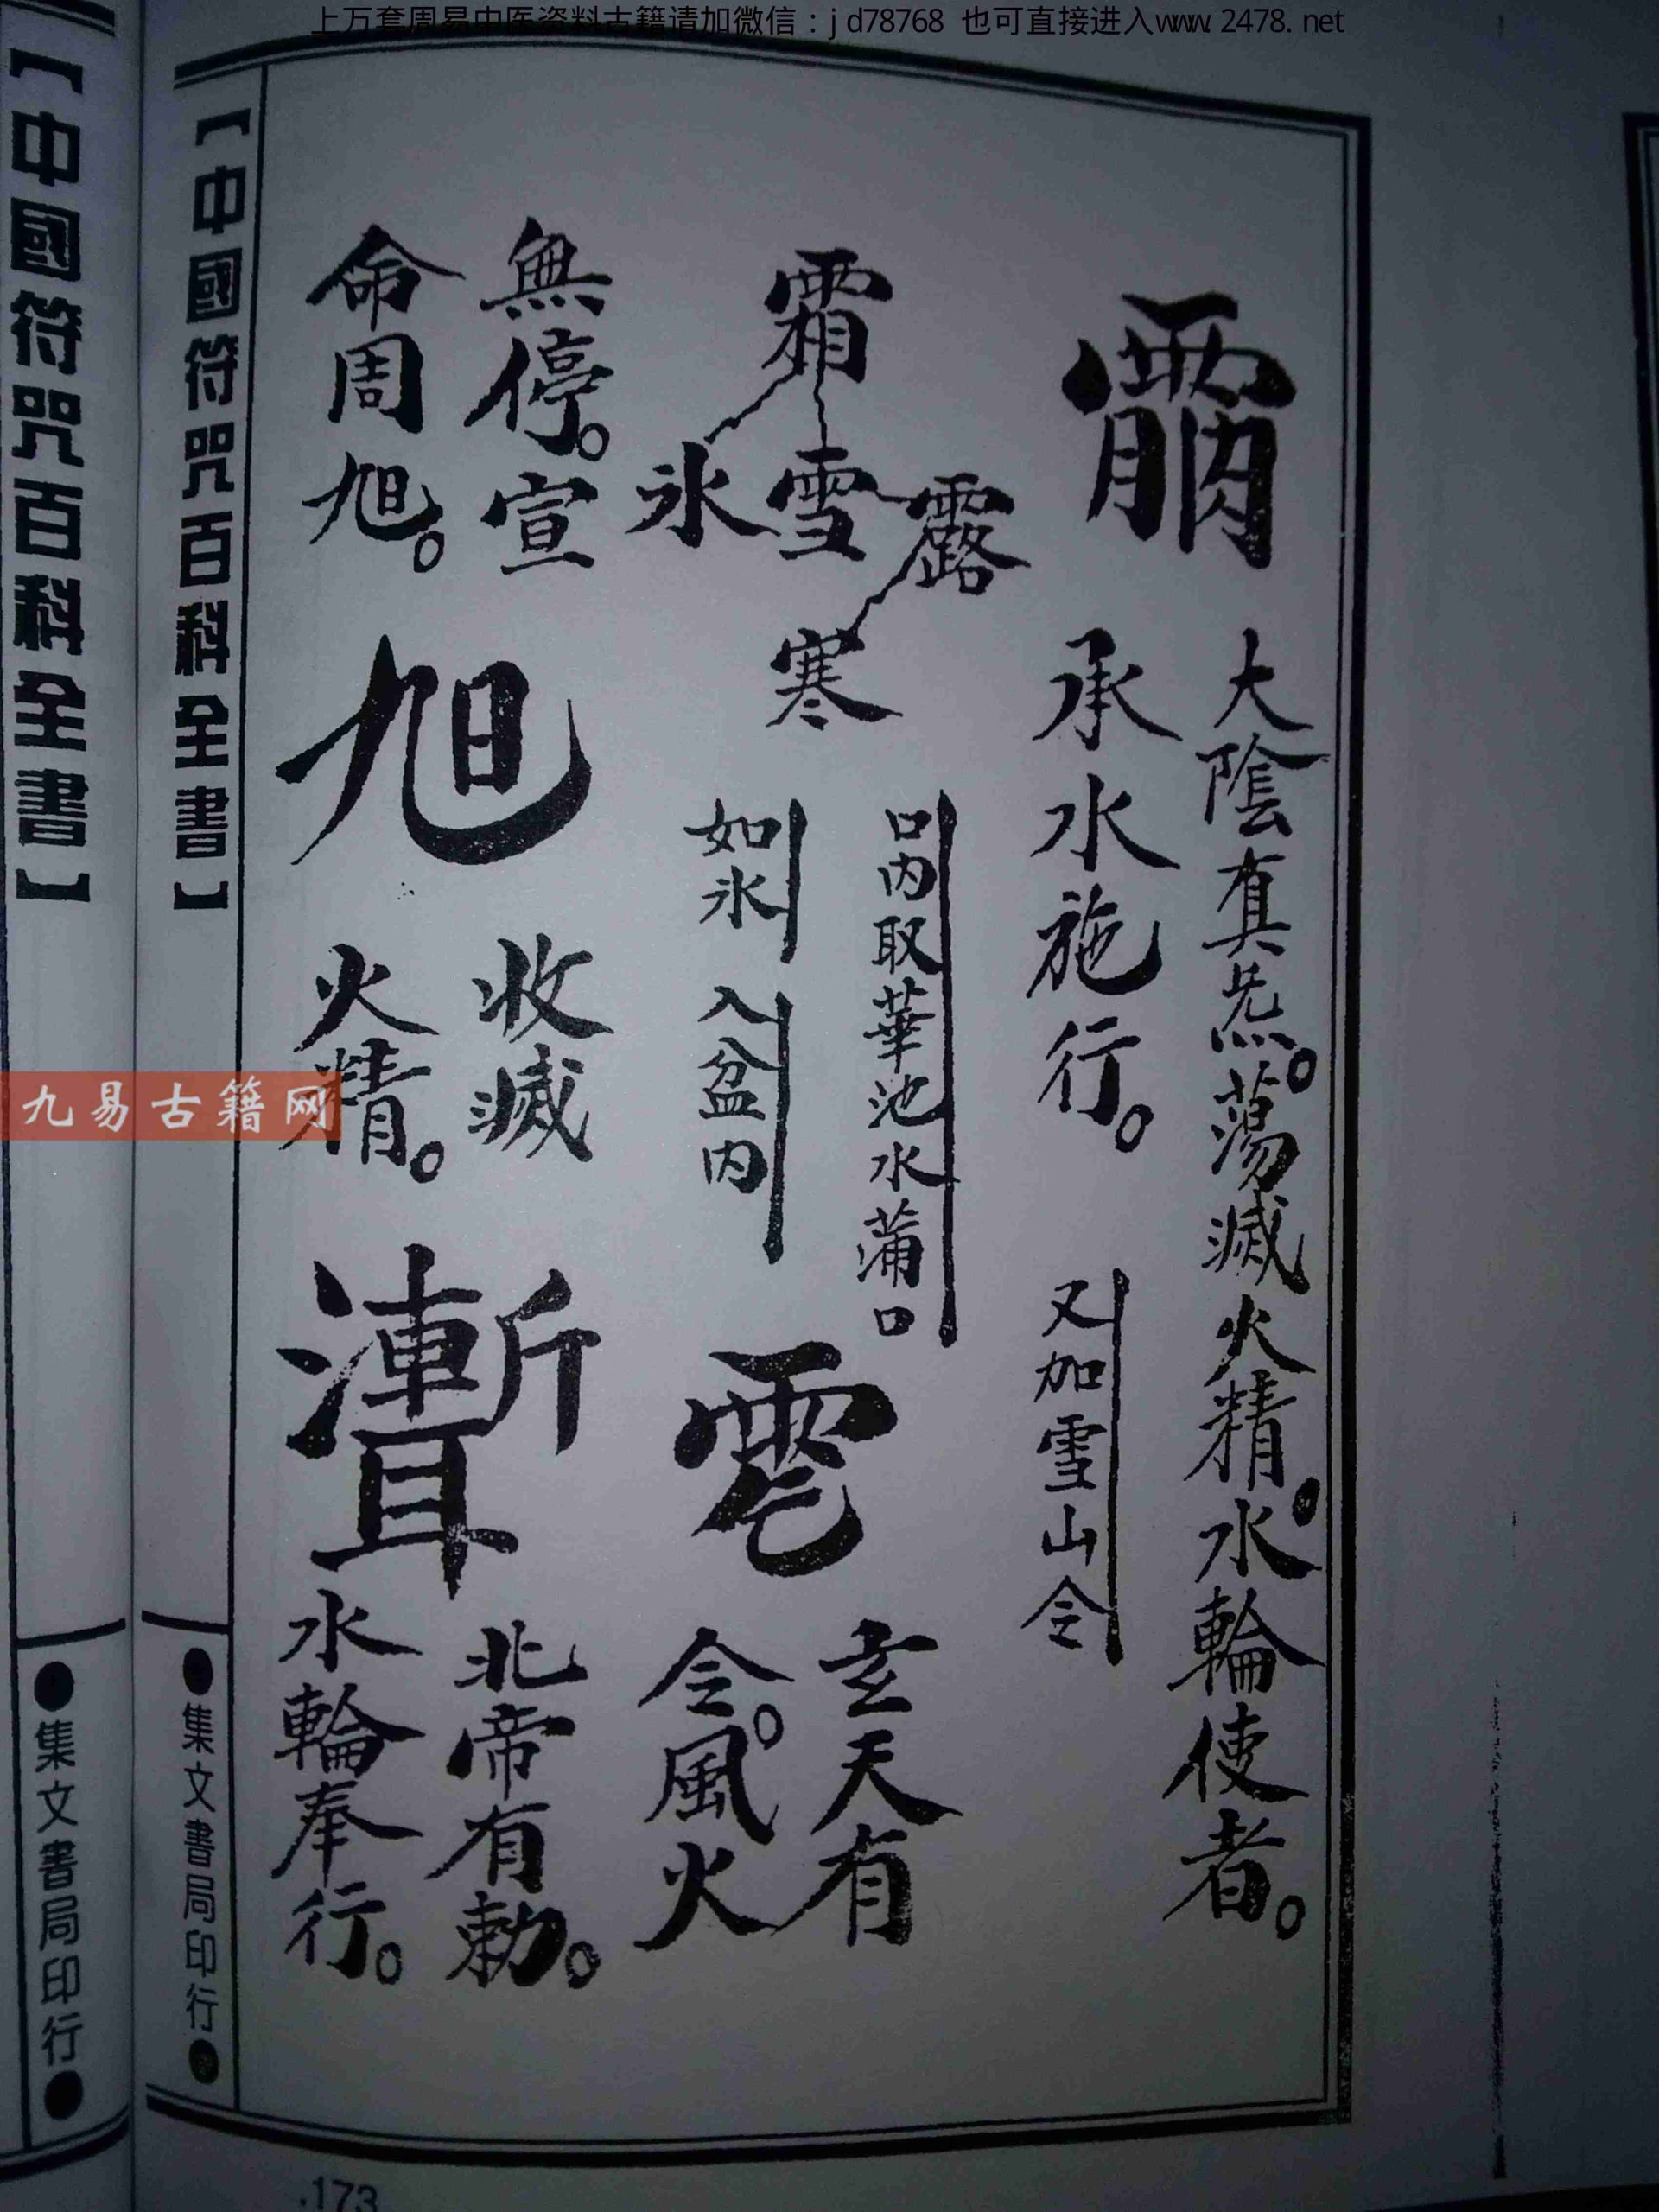 上万套周易中医资料古籍请加微信：jd78768 也可直接进入www.2478.net
大陰真炁。蕩滅火精。水輪使者。
承水施行。
又加雪山令
霜
氷雪露
寒
口内取華池水蒲口
如氷
入盆内
雹
玄天有
令。風火
無停。宣
命周旭。
旭
收滅
火精。
北帝有勅。
水輪奉行。
【中國符咒百科全書】
●集文書局印行●
【中國符咒百科全書】
●集文書局印行●
九易古籍网
·173